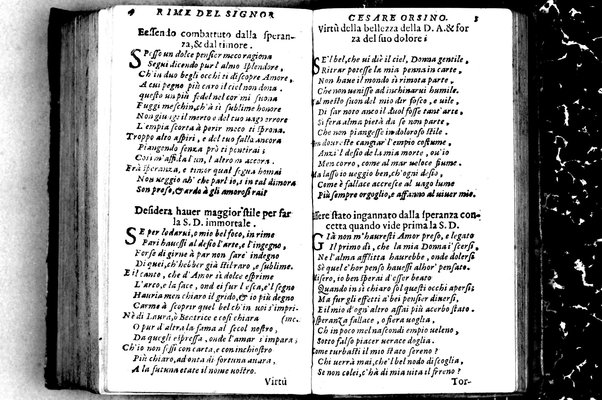 4 RIME DEL SIGNOR
Essendo combattuto dalla speran-
za, & dal timore.
SPesso un dolce pensier meco ragiona
Segui dicendo pur l'almo splendore,
Ch'in duo begli occhi ti discopre Amore,
A cui pegno più caro il ciel non dona.
questo un più fedel nel cor mi suona
Fuggi meschin, ch'à sì sublime honore
Non giunge il merto e del tuo vago errore
L'empia scorta à perir meco ti sprona.
Troppo alto aspiri, e del tuo fallo ancora
Piangendo senza prò ti pentirai;
Così m'affida l'un, l'altro m'accora.
Frà speranza, e timor qual fegua homai
Non veggio ah' che parl'io, s in tal dimora
Son preso, & ardo à gli amorosi rai?
Desidera hauer maggior stile per far
la S. D. immortale.
SE per lodarui, o mio bel foco, in rime
Pari hauessi al desio l'arte, e l'ingegno,
Forse di girne à par non sare' indegno
Di quei, ch'hebber già stil raro, e sublime.
E il canto, che d'Amor sì dolce esprime
L'arco, e la face, ond ei fur l'esca, e'l segno
Hauria men chiaro il grido, & io più degno
Carme à scoprir quel bel ch'in voi s'impri-
Nè di Laura, ò Beatrice e così chiara (me.
O pur d'altra la fama al secol nostro,
Da quegli espressa, onde l'amar s'impara;
Ch'io non fessi con carta, e con inchiostro
Più chiaro, ad onta di fortuna auara,
A la futura etate il nome vostro.
Virtù
CESARE ORSINO. 5
Virtù della bellezza della D. A. & for
za del suo dolore;
SE'l bel, che vi diè il ciel, Donna gentile,
Ritrar potesse la mia penna in carte,
Non haue il mondo sì rimota parte,
Che non venisse ad inchinarui humile.
al mesto suon del mio dir fosco, e vile,
Di far noto anco il duol fosse tant'arte,
Sì fera alma pietà da se non parte,
Che non piangesse in doloroso stile.
In dour este cangiar l'empio costume,
Anzi'l desio de la mia morte, ou'io
Men corro, come al mar veloce fiume.
Ma lasso io veggio ben, ch'ogni desio,
Come à fallace accresce al vago lume
Più sempre orgoglio, e affanno al viuer mio.
Essere stato ingannato dalla speranza con-
cetta quando vide prima la S. D.
GIà non m'hauresti Amor preso, e legato
Il primo dì, che la mia Donna i'scersi,
Ne l'alma afflitta haurebbe, onde dolersi
Sè quel c'hor penso hauessi alhor' pensato.
disero, io ben sperai d'esser beato
Quando in sì chiaro sol questi occhi apersi:
Ma fur gli effetti à' bei pensier diuersi,
E il mio d'ogn'altro assai più acerbo stato.
Speranza fallace, o fiera voglia,
Ch'in poco mel nascondi empio veleno,
Sotto falso piacer verace doglia.
Come turbasti il mio stato sereno?
Chi uerrà mai, che'l bel nodo discioglia,
Se non colei, c'hà di mia uita il freno?
Tor-